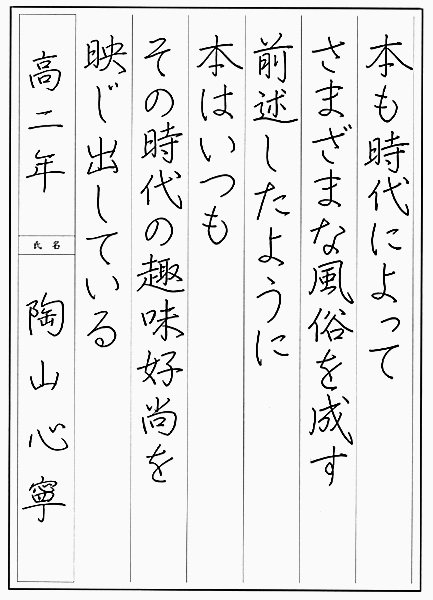 本も時代によって
さまざまな風俗を成す
前述したように
本はいつも
その時代の趣味好尚を
映じ出している
高二年
氏名
陶山心寧